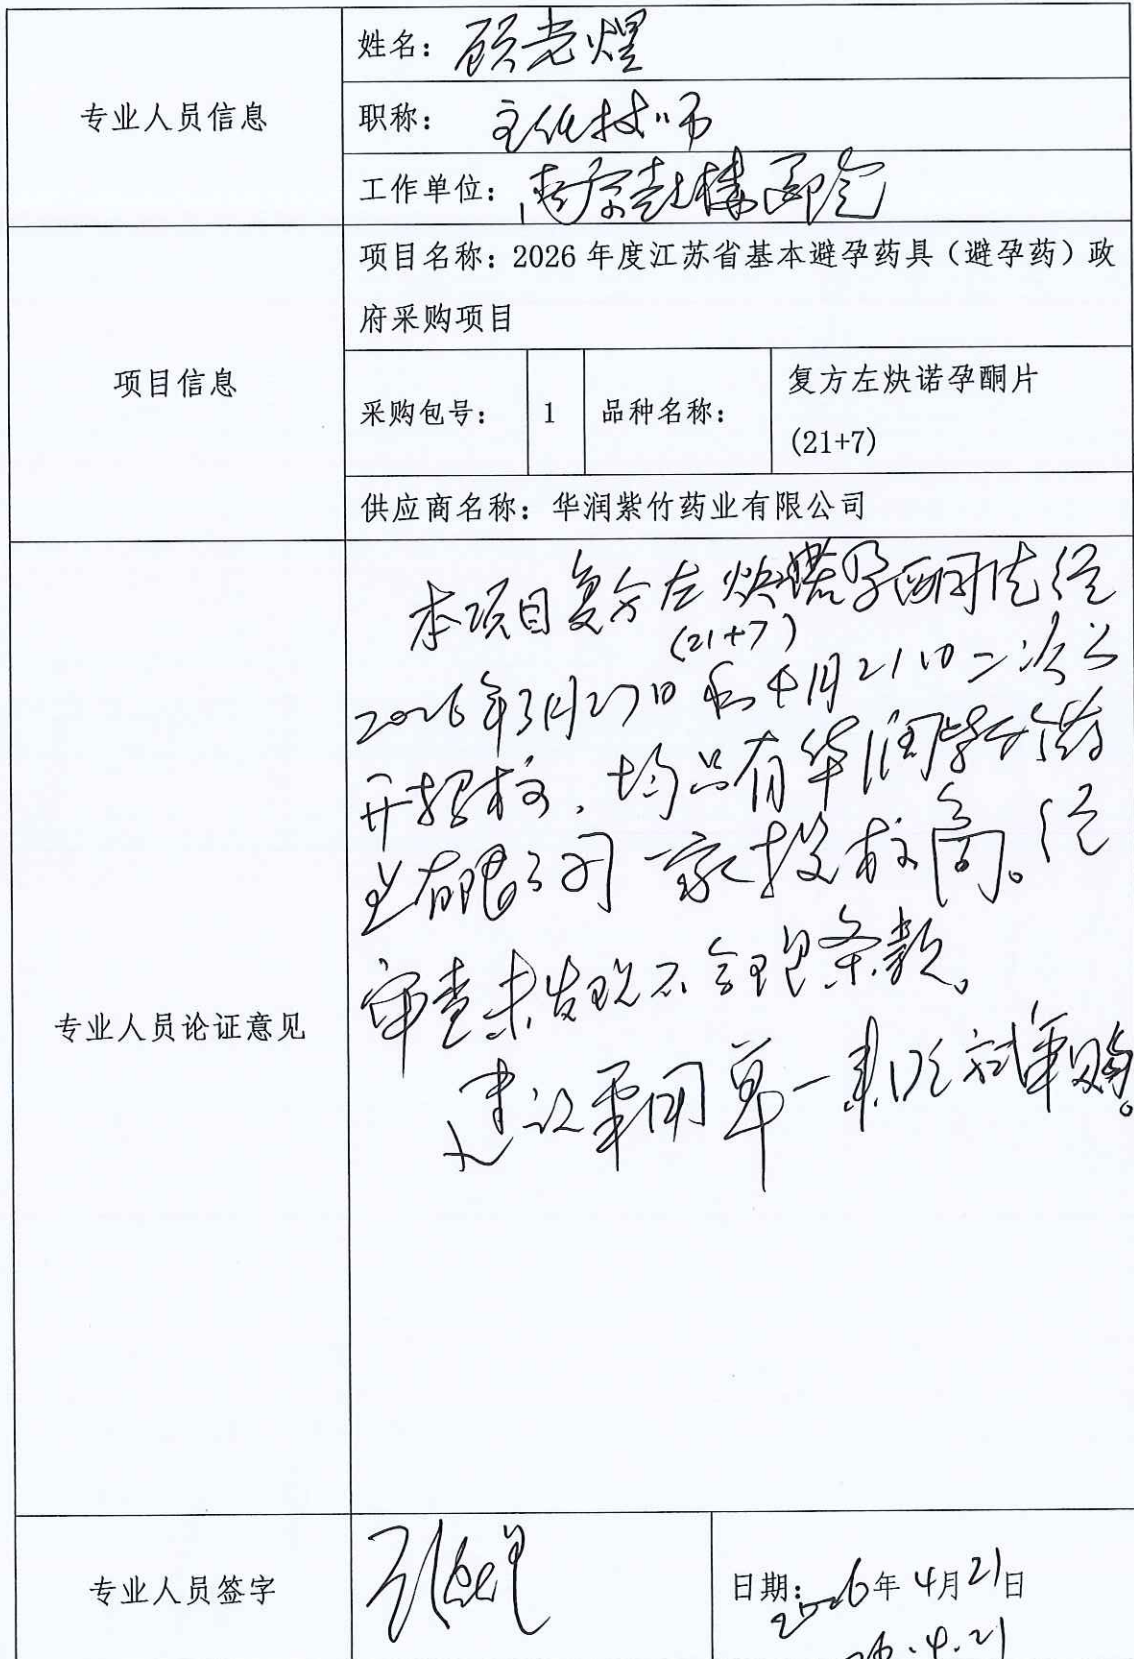 专业人员信息
姓名：顾光煜
职称：主任技师
工作单位：南京鼓楼医院
项目信息
项目名称：2026 年度江苏省基本避孕药具（避孕药）政
府采购项目
采购包号： 1 品种名称： 复方左炔诺孕酮片
(21+7)
供应商名称：华润紫竹药业有限公司
专业人员论证意见
本项目复方左炔诺孕酮片经
(21+7)
2026年3月27日和4月21日二次公
开招标，均只有华润紫竹药
业有限公司一家投标商。经
审查未发现不合理条款。
建议采用单一来源方式采购。
专业人员签字
日期：2026年4月21日
26.4.21